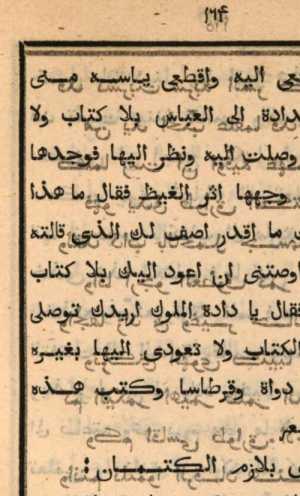 ١٦٤
عى اليه واقطعى ياسه منى
دادة الى العباس بلا كتاب ولا
وصلت اليه ونظر اليها فوجدها
وجهها اثر الغيظ فقال ما هذا
ما اقدر اصف لك الذى قالته
اوصتنى ان اعود اليك بلا كتاب
فقال يا دادة الملوك اريدك توصلى
الكتاب ولا تعودى اليها بغيره
دواة وقرطاسا وكتب هذه
عر
بلازم الكتمان :